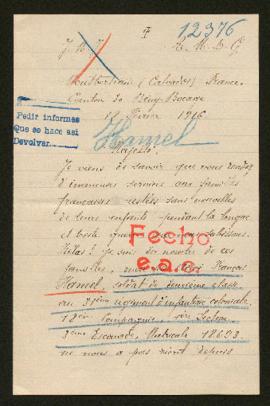 12376
J. M. J.
Montbertrand (Calvados) France
Canton de Bény-Bocage
Février 1916
Pedir informes
Que se hace así
Devolver
Hamel
Majesté
Je viens de savoir que vous rendez
d'immenses services aux familles
françaises restées sans nouvelles
de leurs enfants pendant la longue
et guerre que nous subissons.
Hélas! je suis du nombre de ces
Fecho
e.a.c.
familles, mon François
Hamel, soldat de deuxième classe
au régiment d'infanterie coloniale
Compagnie, Section
Escouade, Matricule 18623
ne nous a pas écrit depuis